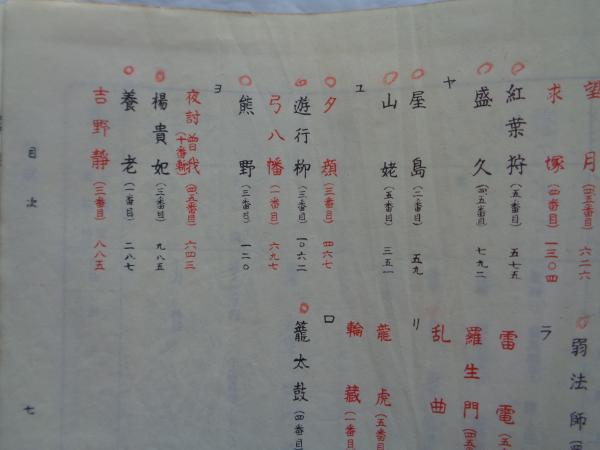 望月（四・五番目）六二六
求塚（四番目）一三〇四
紅葉狩（五番目）五七五
盛久（四・五番目）七九二
ヤ
屋島（二番目）五九
山姥（五番目）三五一
ユ
夕顔（三番目）四六七
遊行柳（三番目）一〇六二
弓八幡（一番目）六九七
熊野（三番目）一二〇
ヨ
夜討曽我（四・五番目）六四三
（十番斬）
楊貴妃（三番目）九八五
養老（一番目）二八七
吉野静（三番目）八八五
弱法師（四
ラ
雷電（五
羅生門（四・五
乱曲
リ
龍虎（五番目
輪藏（一番目
ロ
籠太鼓（四番目
目次
七